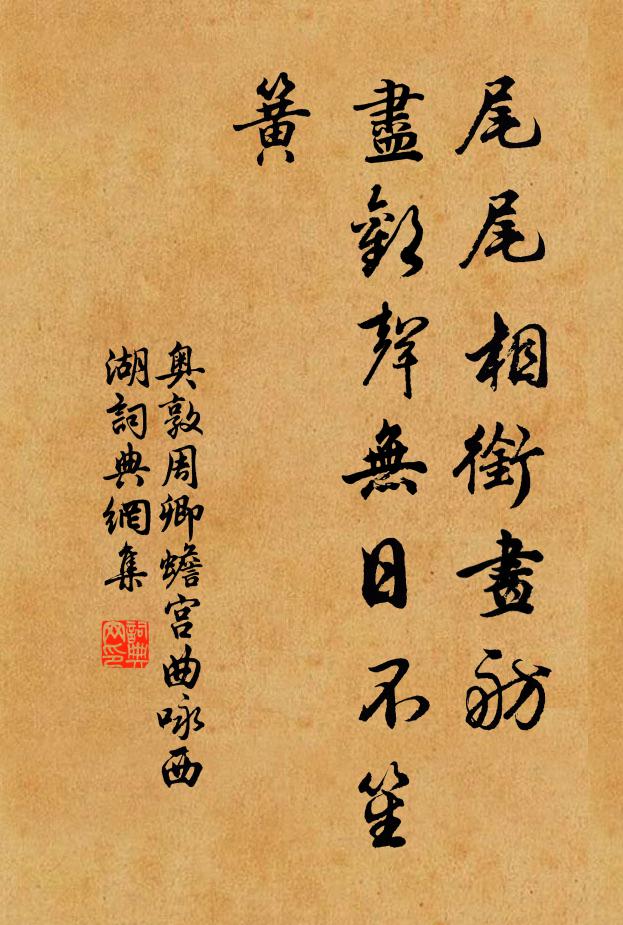 尾尾相銜畫舫
盡歡聲無日不笙
簧
奥敦周卿蟾宮曲咏西
湖詞典網集
詞典
网印